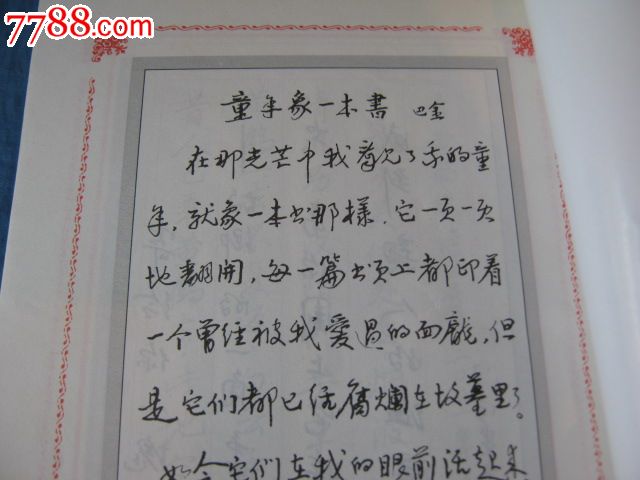 7788.com
童年象一本書 巴金
在那光芒中我看見了我的童
年，就象一本书那樣．它一页一页
地翻開，每一篇书页上都印着
一个曾经被我愛過的面龐，但
是它们都已经腐爛在坟墓里了。
如今它们在我的眼前活起来